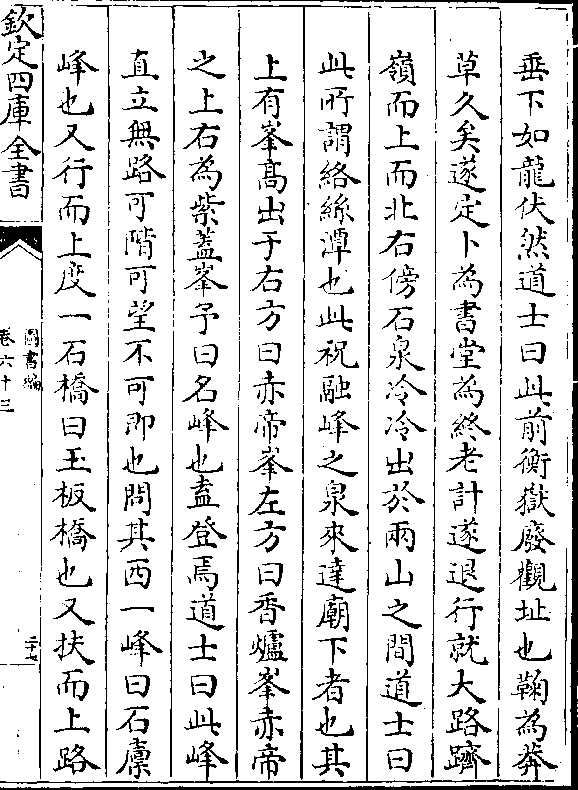 垂下如龍伏然道士曰此前衡獄廢觀址也鞠為莽
草久矣遂定卜為書堂為終老計遂退行就大路躋
嶺而上而北右傍石泉冷冷出於兩山之間道士曰
此所謂絡絲潭也此祝融峰之泉來達廟下者也其
上有峯髙出于右方曰赤帝峯左方曰香爐峯赤帝
之上右為紫蓋峯予曰名峰也盍登焉道士曰此峰
直立無路可階可望不可即也問其西一峰曰石廪
峰也又行而上度一石橋曰玉板橋也又扶而上路
欽定四庫全書
圖書編
卷六十三
二十七